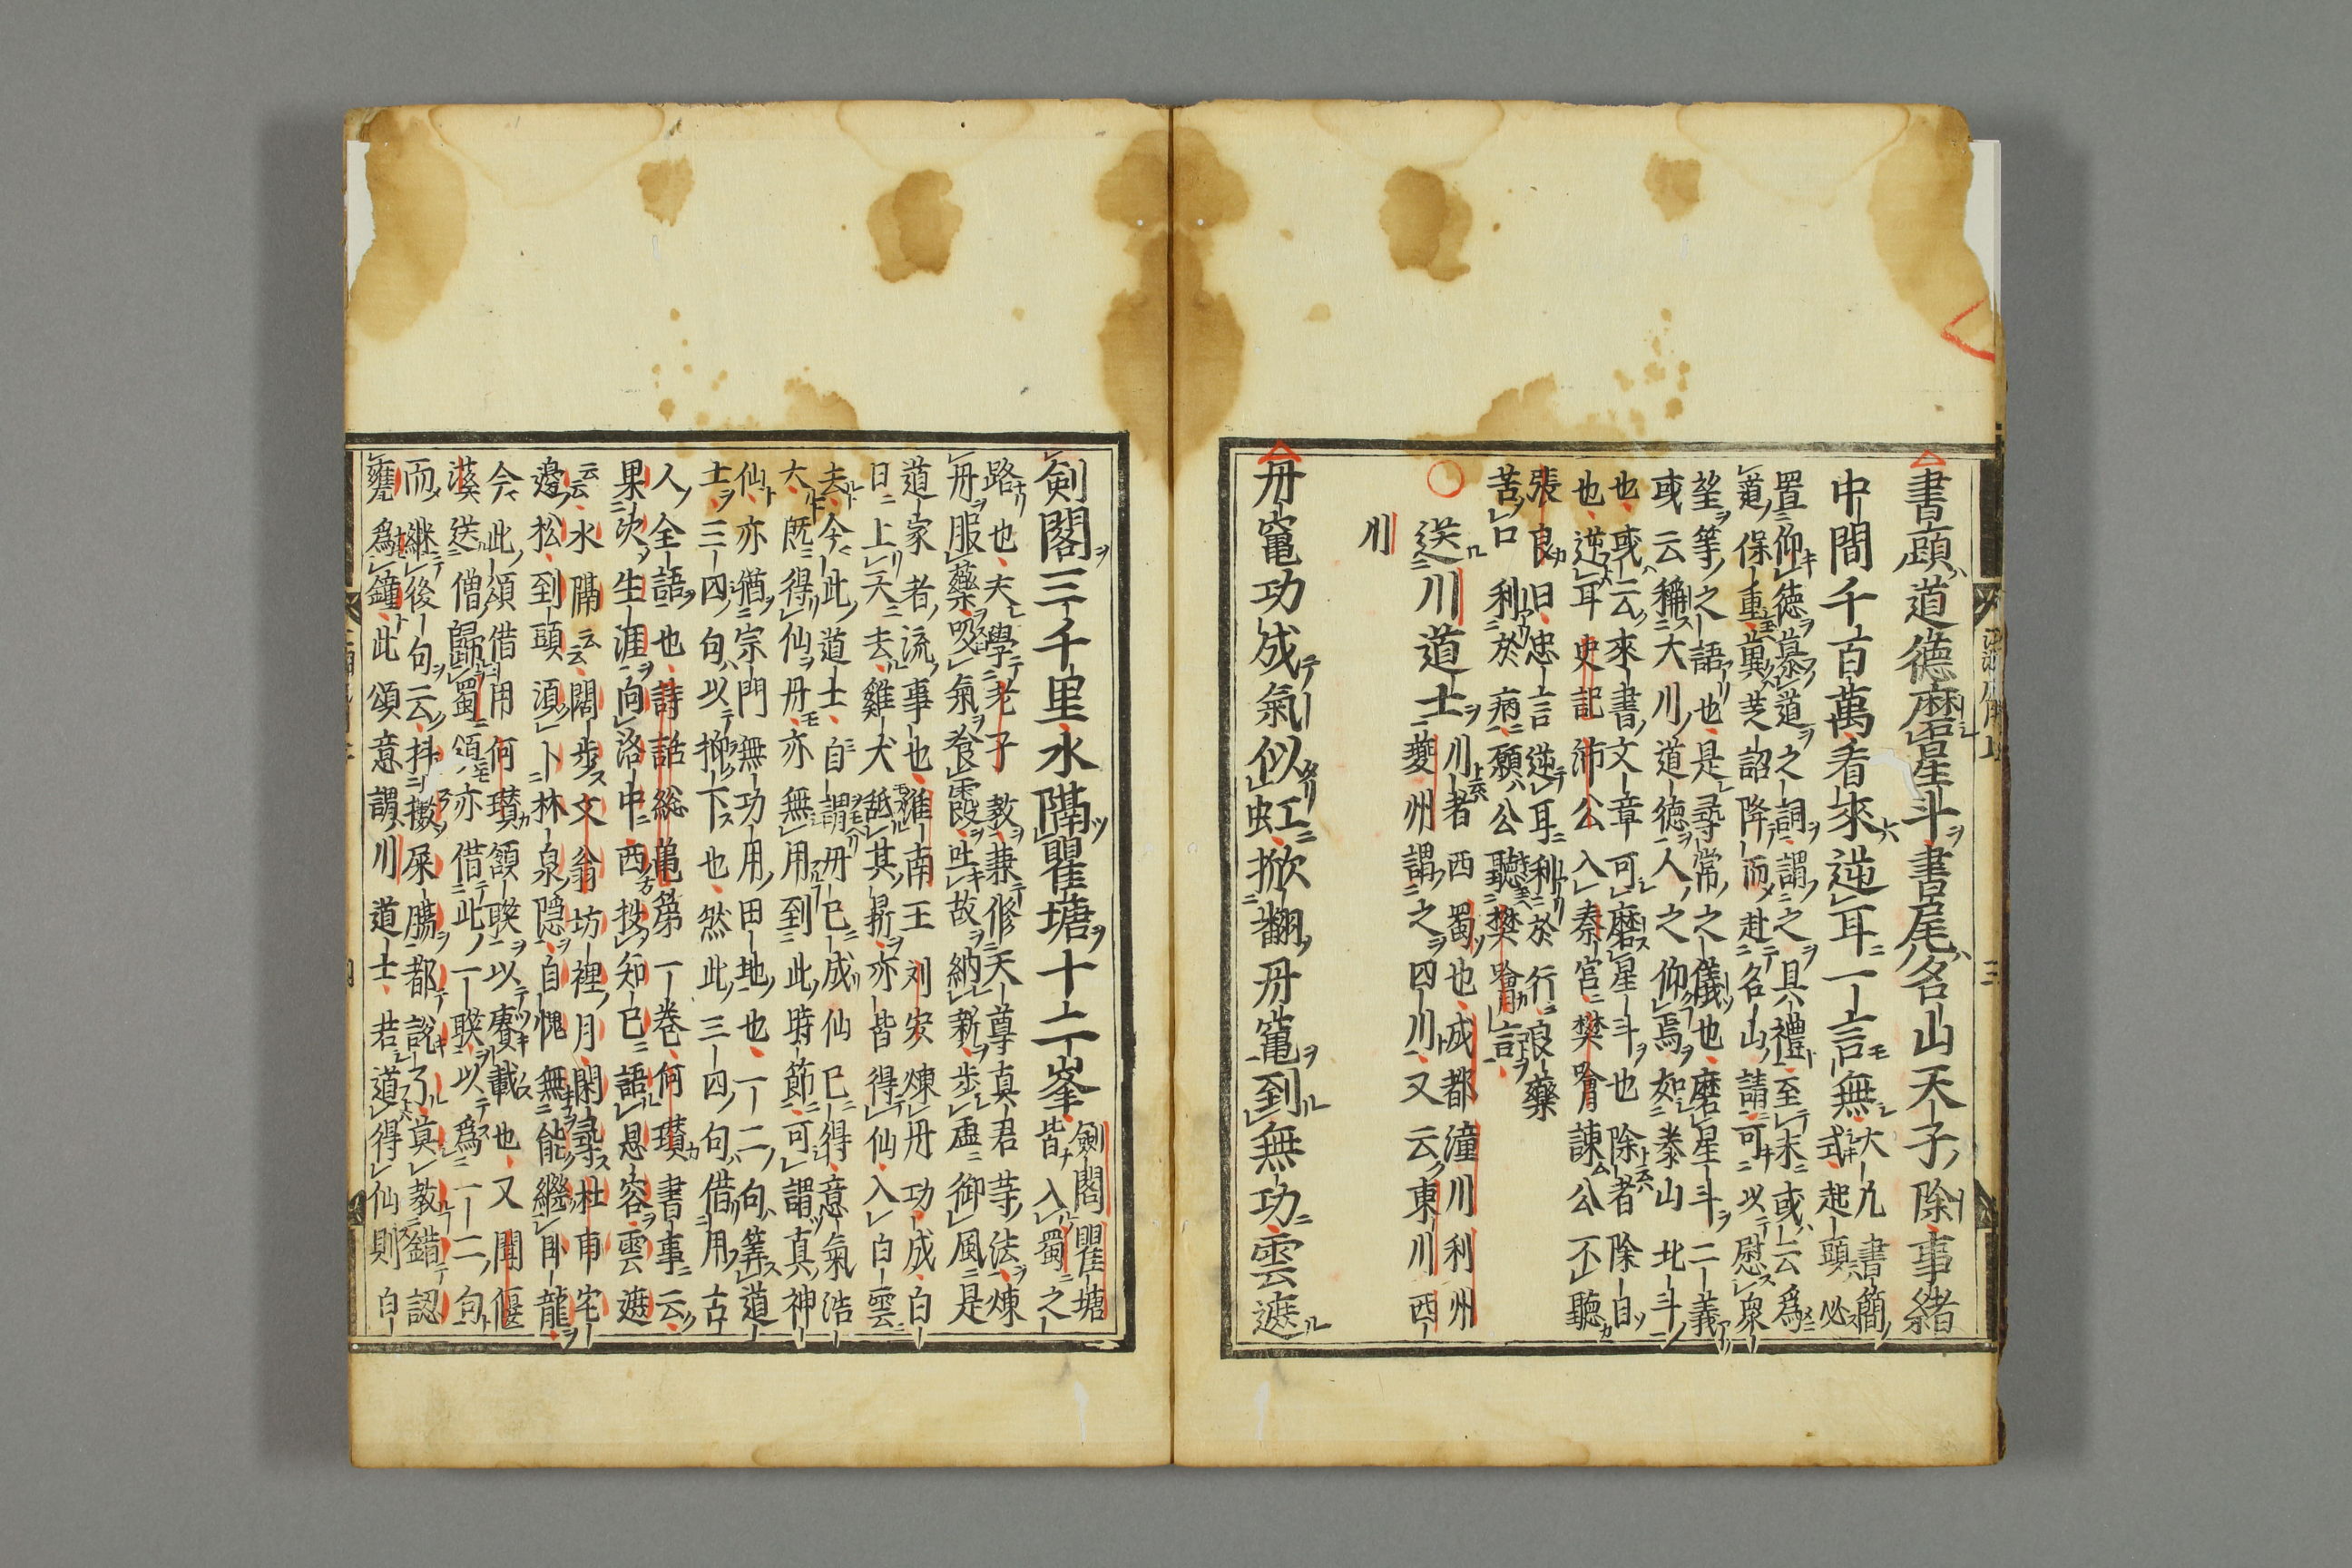 書顧道德磨星斗書尾名山天子除事緒
中間千百萬看來逆耳一言無大凡書簡ノ
式起頭必
置仰德慕道之詞謂之具禮至末或云爲
道保重冀芝詔降而赴名山請可以慰衆
望等之語也是尋常之儀也磨星斗二義
或云稱大川道德人之仰焉如泰山北斗
也或云來書文章可磨星斗也除者除白
也逆耳史記沛公入秦官樊噲諫公不聽
張良曰忠言逆耳利於行良藥
苦口利於病願公聽樊噲言
送川道士川者西蜀也成都潼川利州
夔州謂之四川又云東川西
川
丹竃功成氣似虹掀翻丹竃到無功雲遮
劍閣三千里水隔瞿塘十二峯劍閣瞿塘
皆入蜀之
路也夫學老子教兼修天尊真君等法煉
丹服藥吸氣飡霞吐故納新步虛御風是
道家者流事也淮南王刘安煉丹功成白
日上天去雞犬舐其鼎亦皆得仙入白雲
去今此道士自謂丹已成仙已得意氣浩
大既得仙丹亦無用到此時節可謂真神
仙亦猶宗門無功用田地也一二句筭道
士三四句以抑下也然此三四句借用古
人全語也詩話総亀第一巻何瓚書事云
果決生涯向洛中西投知己語忽容雲遮
云云水隔云云闊步文翁坊裡月閑尋杜甫宅
邊松到頭須卜林泉隱自愧無能繼臥龍
今此頌借用何瓚頷聯以賡載也又聞偃
溪送僧歸蜀頌亦借此一聯以爲一二句
而継後句云抖擻屎膓都說了真教錯認
甕爲鐘此頌意謂川道士若道得仙則白